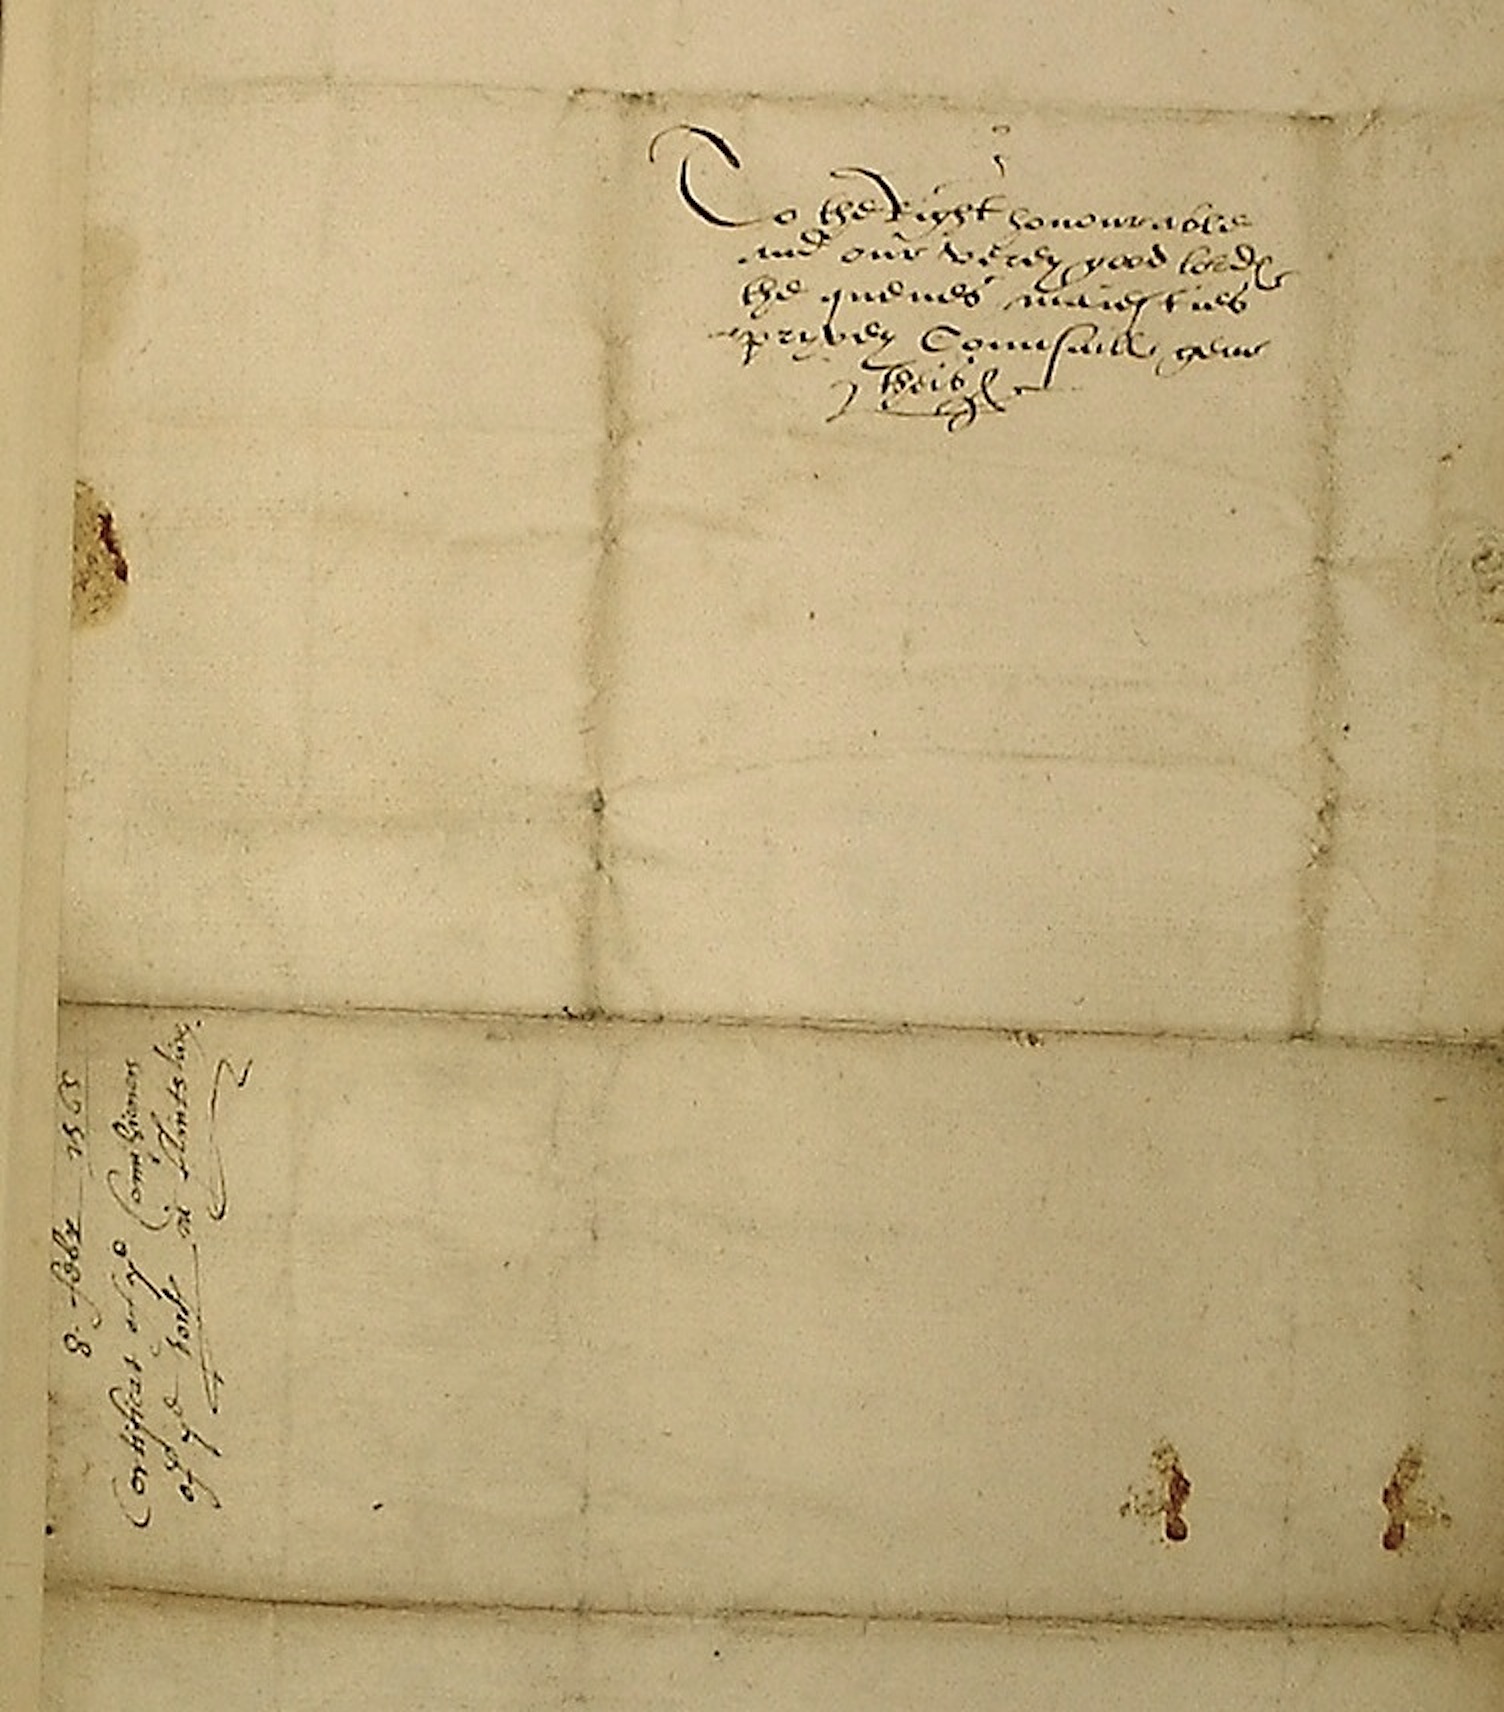 To the Right honourable
and our verey good lordes
the quenes maiesties
pryvey Counsaill geue
theis
8. febr 1565
Certificat of ye Comissioners
of ye port in flintshire.